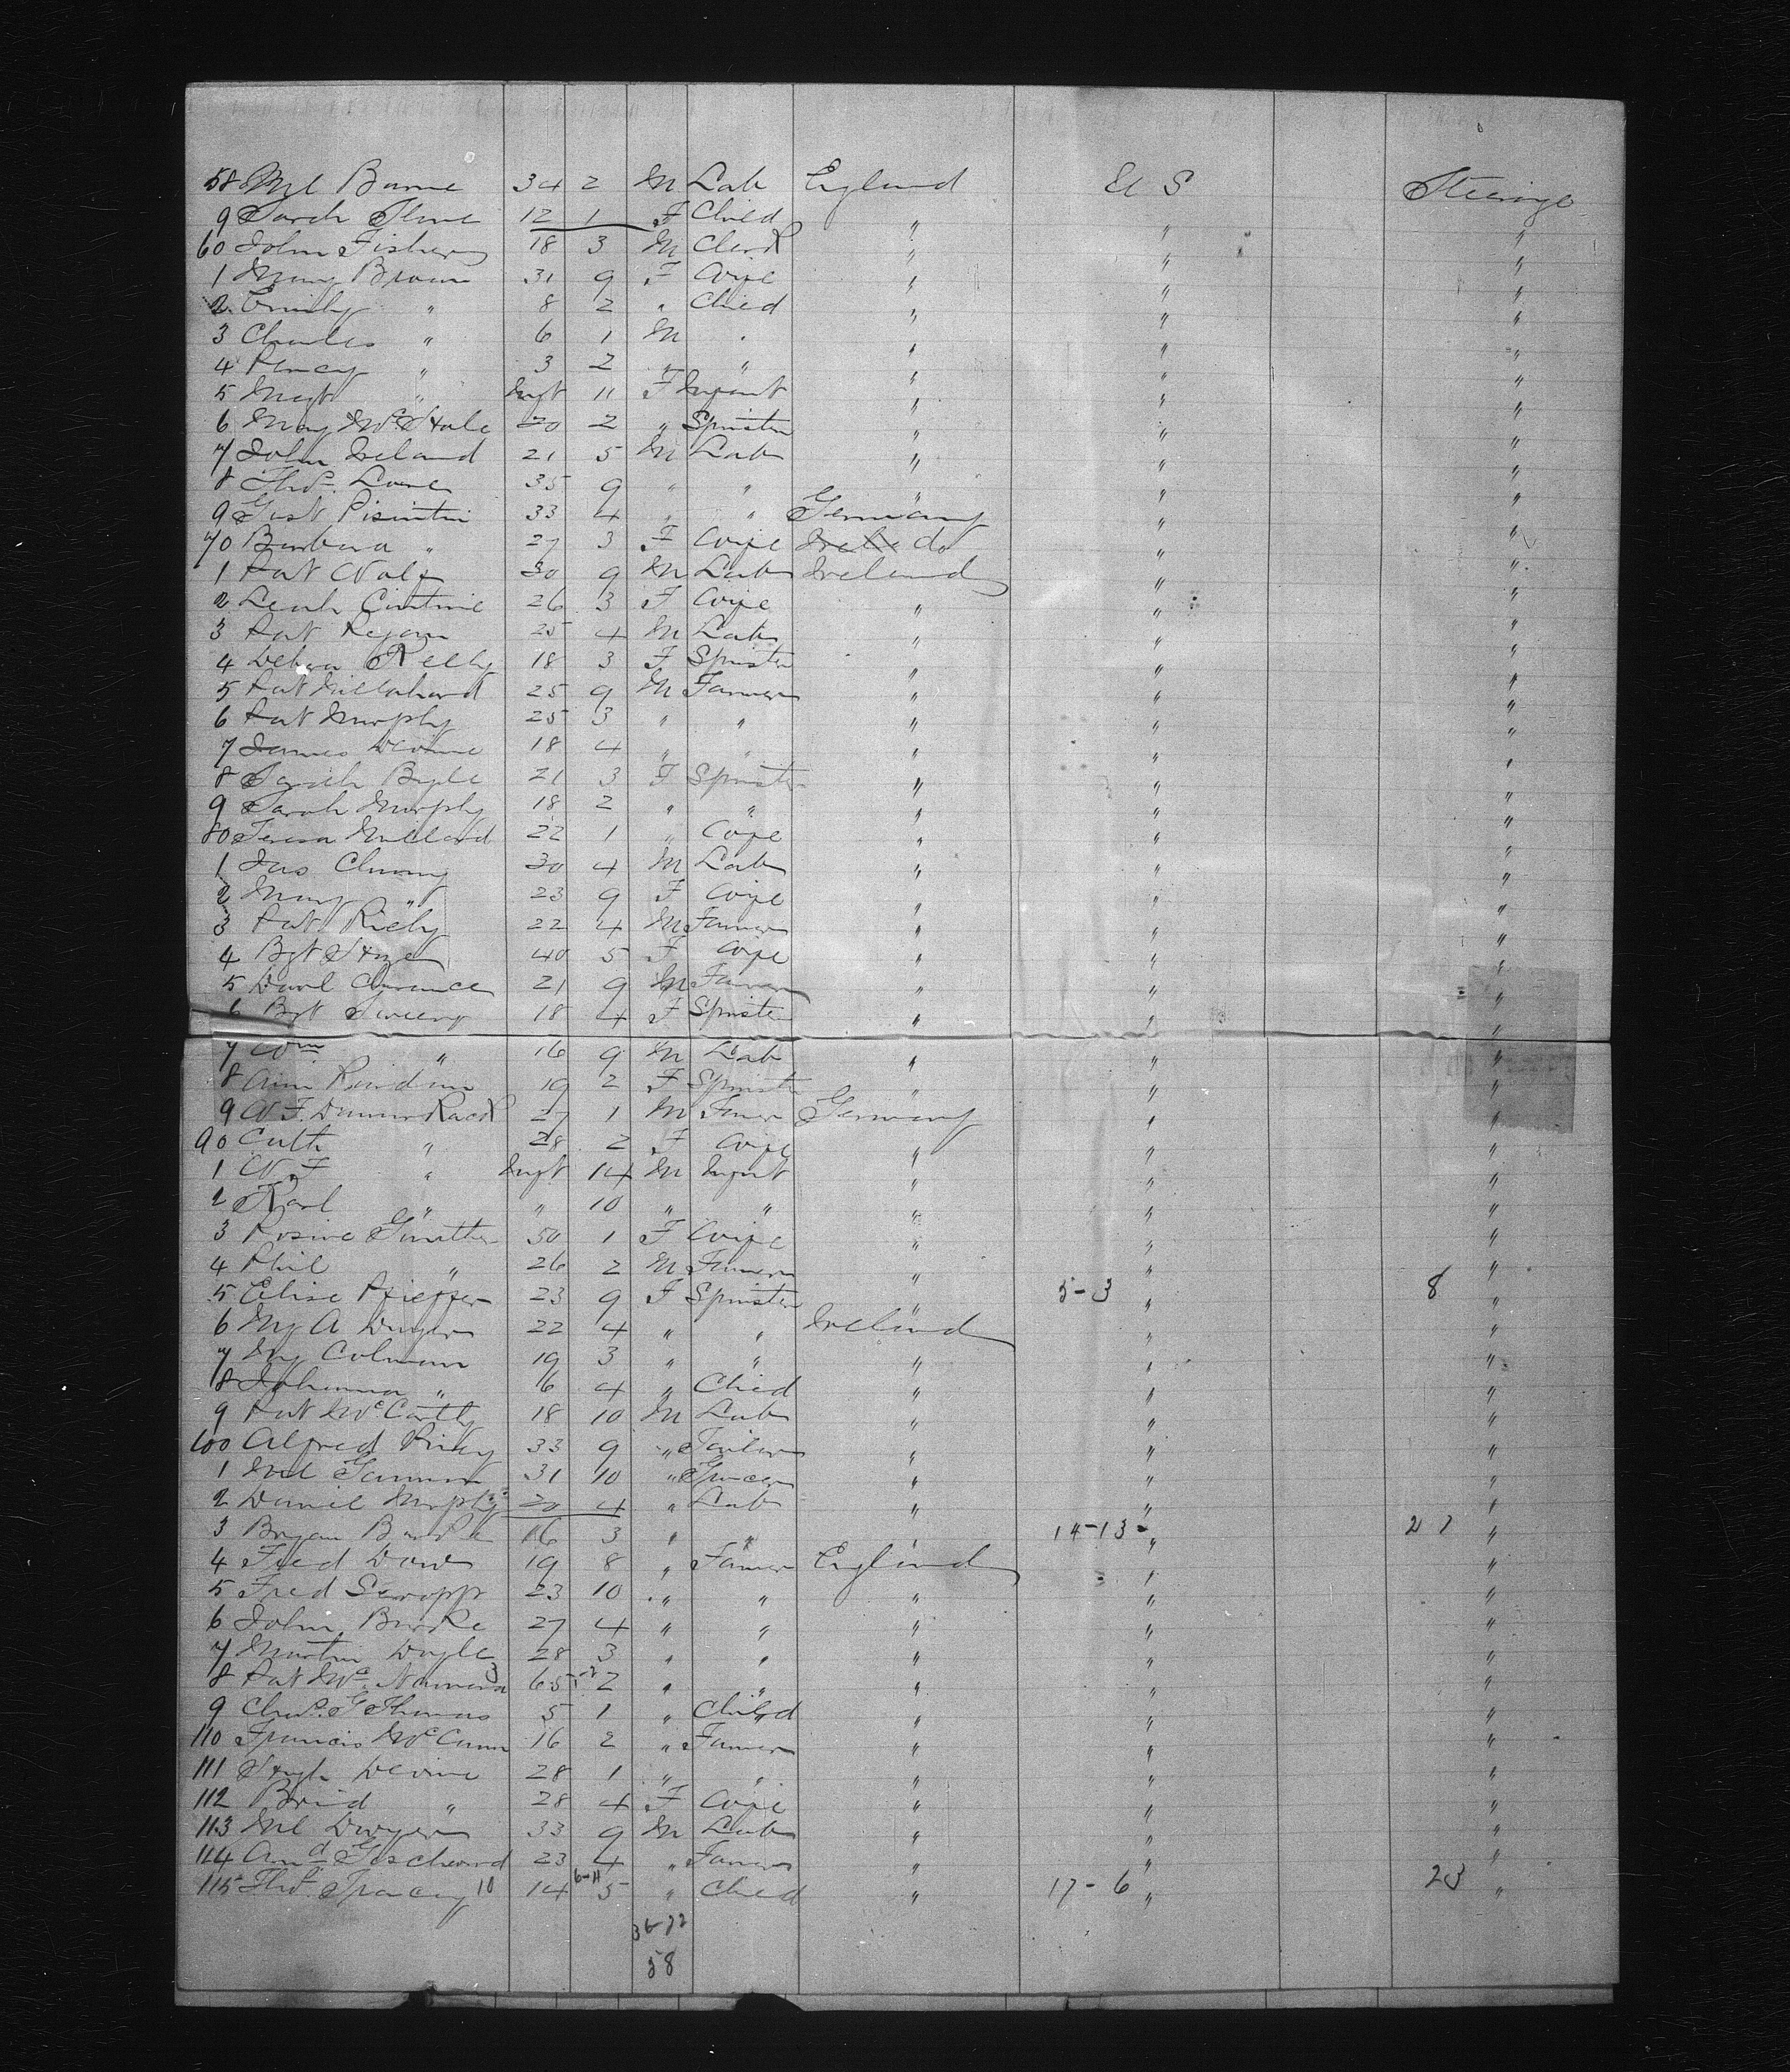 58 Ml Burne 34 2 M Lab England U S Steerage
9 Sarah 12 1 F Child " " "
60 John Fisher 18 3 M Clerk " " "
1 Mary Brown 31 9 F Wife " " "
2 Emily " 8 2 " Child " " "
3 Charles " 6 1 M " " " "
4 Percy " 3 2 " " " " "
5 Magt " Inft 11 F Infant " " "
6 Mary McHale 20 2 " Spinster " " "
7 John Ireland 21 5 M Lab " " "
8 Thos. Lane 35 9 " " " " "
9 Gust 33 4 " " Germany " "
70 Barbara " 27 3 F Wife do " "
1 Pat Wolf 30 9 M Lab Ireland " "
2 Leah 26 3 F Wife " " "
3 Pat Regan 25 4 M Lab " " "
4 Delia Kelly 18 3 F Spinster " " "
5 Pat 25 9 M Farmer " " "
6 Pat Murphy 25 3 " " " " "
7 James Devine 18 4 " " " " "
8 Sarah Boyle 21 3 F Spinster " " "
9 Sarah Murphy 18 2 " " " " "
80 Teresa 22 1 " Wife " " "
1 Jas 30 4 M Lab " " "
2 Mary " 23 9 F Wife " " "
3 Pat 22 4 M Farmer " " "
4 Bgt 40 5 F Wife " " "
5 21 9 M Farmer " " "
6 Bgt Sweeny 18 4 F Spinster " " "
7 Wm " 16 9 M Lab " " "
8 Ann 19 2 F Spinster " " "
9 W. F. 27 1 M Farmer Germany " "
90 Cath " 28 2 F Wife " " "
1 W. F " Inft 14 M Infant " " "
2 Karl " " 10 " " " " "
3 Rosine Gunther 50 1 F Wife " " "
4 Phil " 26 2 M Farmer " " "
5 Elise Pfieffer 23 9 F Spinster " 5-3 " 8 "
6 My A Dwyer 22 4 " " Ireland " "
7 My Colman 19 3 " " " " "
8 Johanna " 6 4 " Child " " "
9 Pat McCarthy 18 10 M Lab " " "
100 Alfred 33 9 " Tailor " " "
1 Ml Gannon 31 10 " Grocer " " "
2 Daniel Murphy 20 4 " Lab " " "
3 Bryan Burke 16 3 " " " 14-13 " 27 "
4 Fred Dow 19 8 " Farmer England " "
5 Fred 23 10 " " " " "
6 John Burke 27 4 " " " " "
7 Martin Doyle 28 3 " " " " "
8 Pat McNamara 3 65 2 " " " " "
9 Chas. G Thomas 5 1 " Child " " "
110 Francis McCann 16 2 " Farmer " " "
111 Hugh Devine 28 1 " " " " "
112 Brid " 28 4 F Wife " " "
113 Ml Dwyer 33 9 M Lab " " "
114 23 4 " Farmer " " "
115 Thos. Tracey 10 14 6-11 5 " Child " 17-6 " 23 "
36-22
58